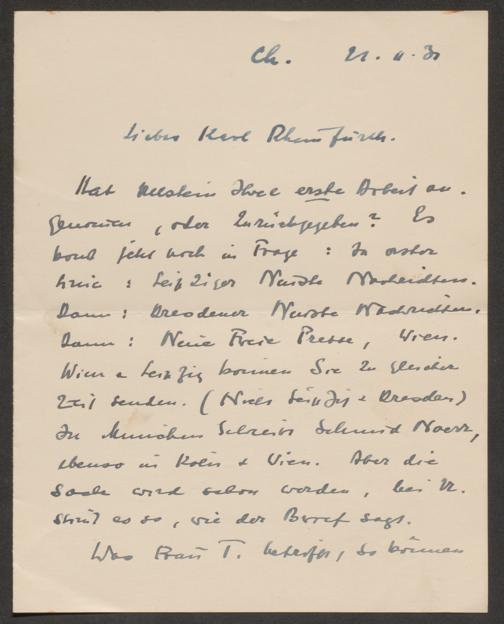 Ch. 21. 11. 30
Lieber Karl Rheinfurth.
Hat Ullstein Ihre erste Arbeit an-
genommen, oder zurückgegeben? Es
kommt jetzt noch in Frage: In erster
Linie: Leipziger Neuste Nachrichten.
Dann: Dresdener Neuste Nachrichten.
Dann: Neue Freie Presse, Wien.
Wien & Leipzig können Sie zu gleicher
Zeit senden. (Nicht Leipzig & Dresden)
In München Schmid Noerr,
ebenso in Köln & Wien. Aber die
Sache wird schon werden, bei
es so, wie der Brief sagt.
Was Frau T. betrifft, so können